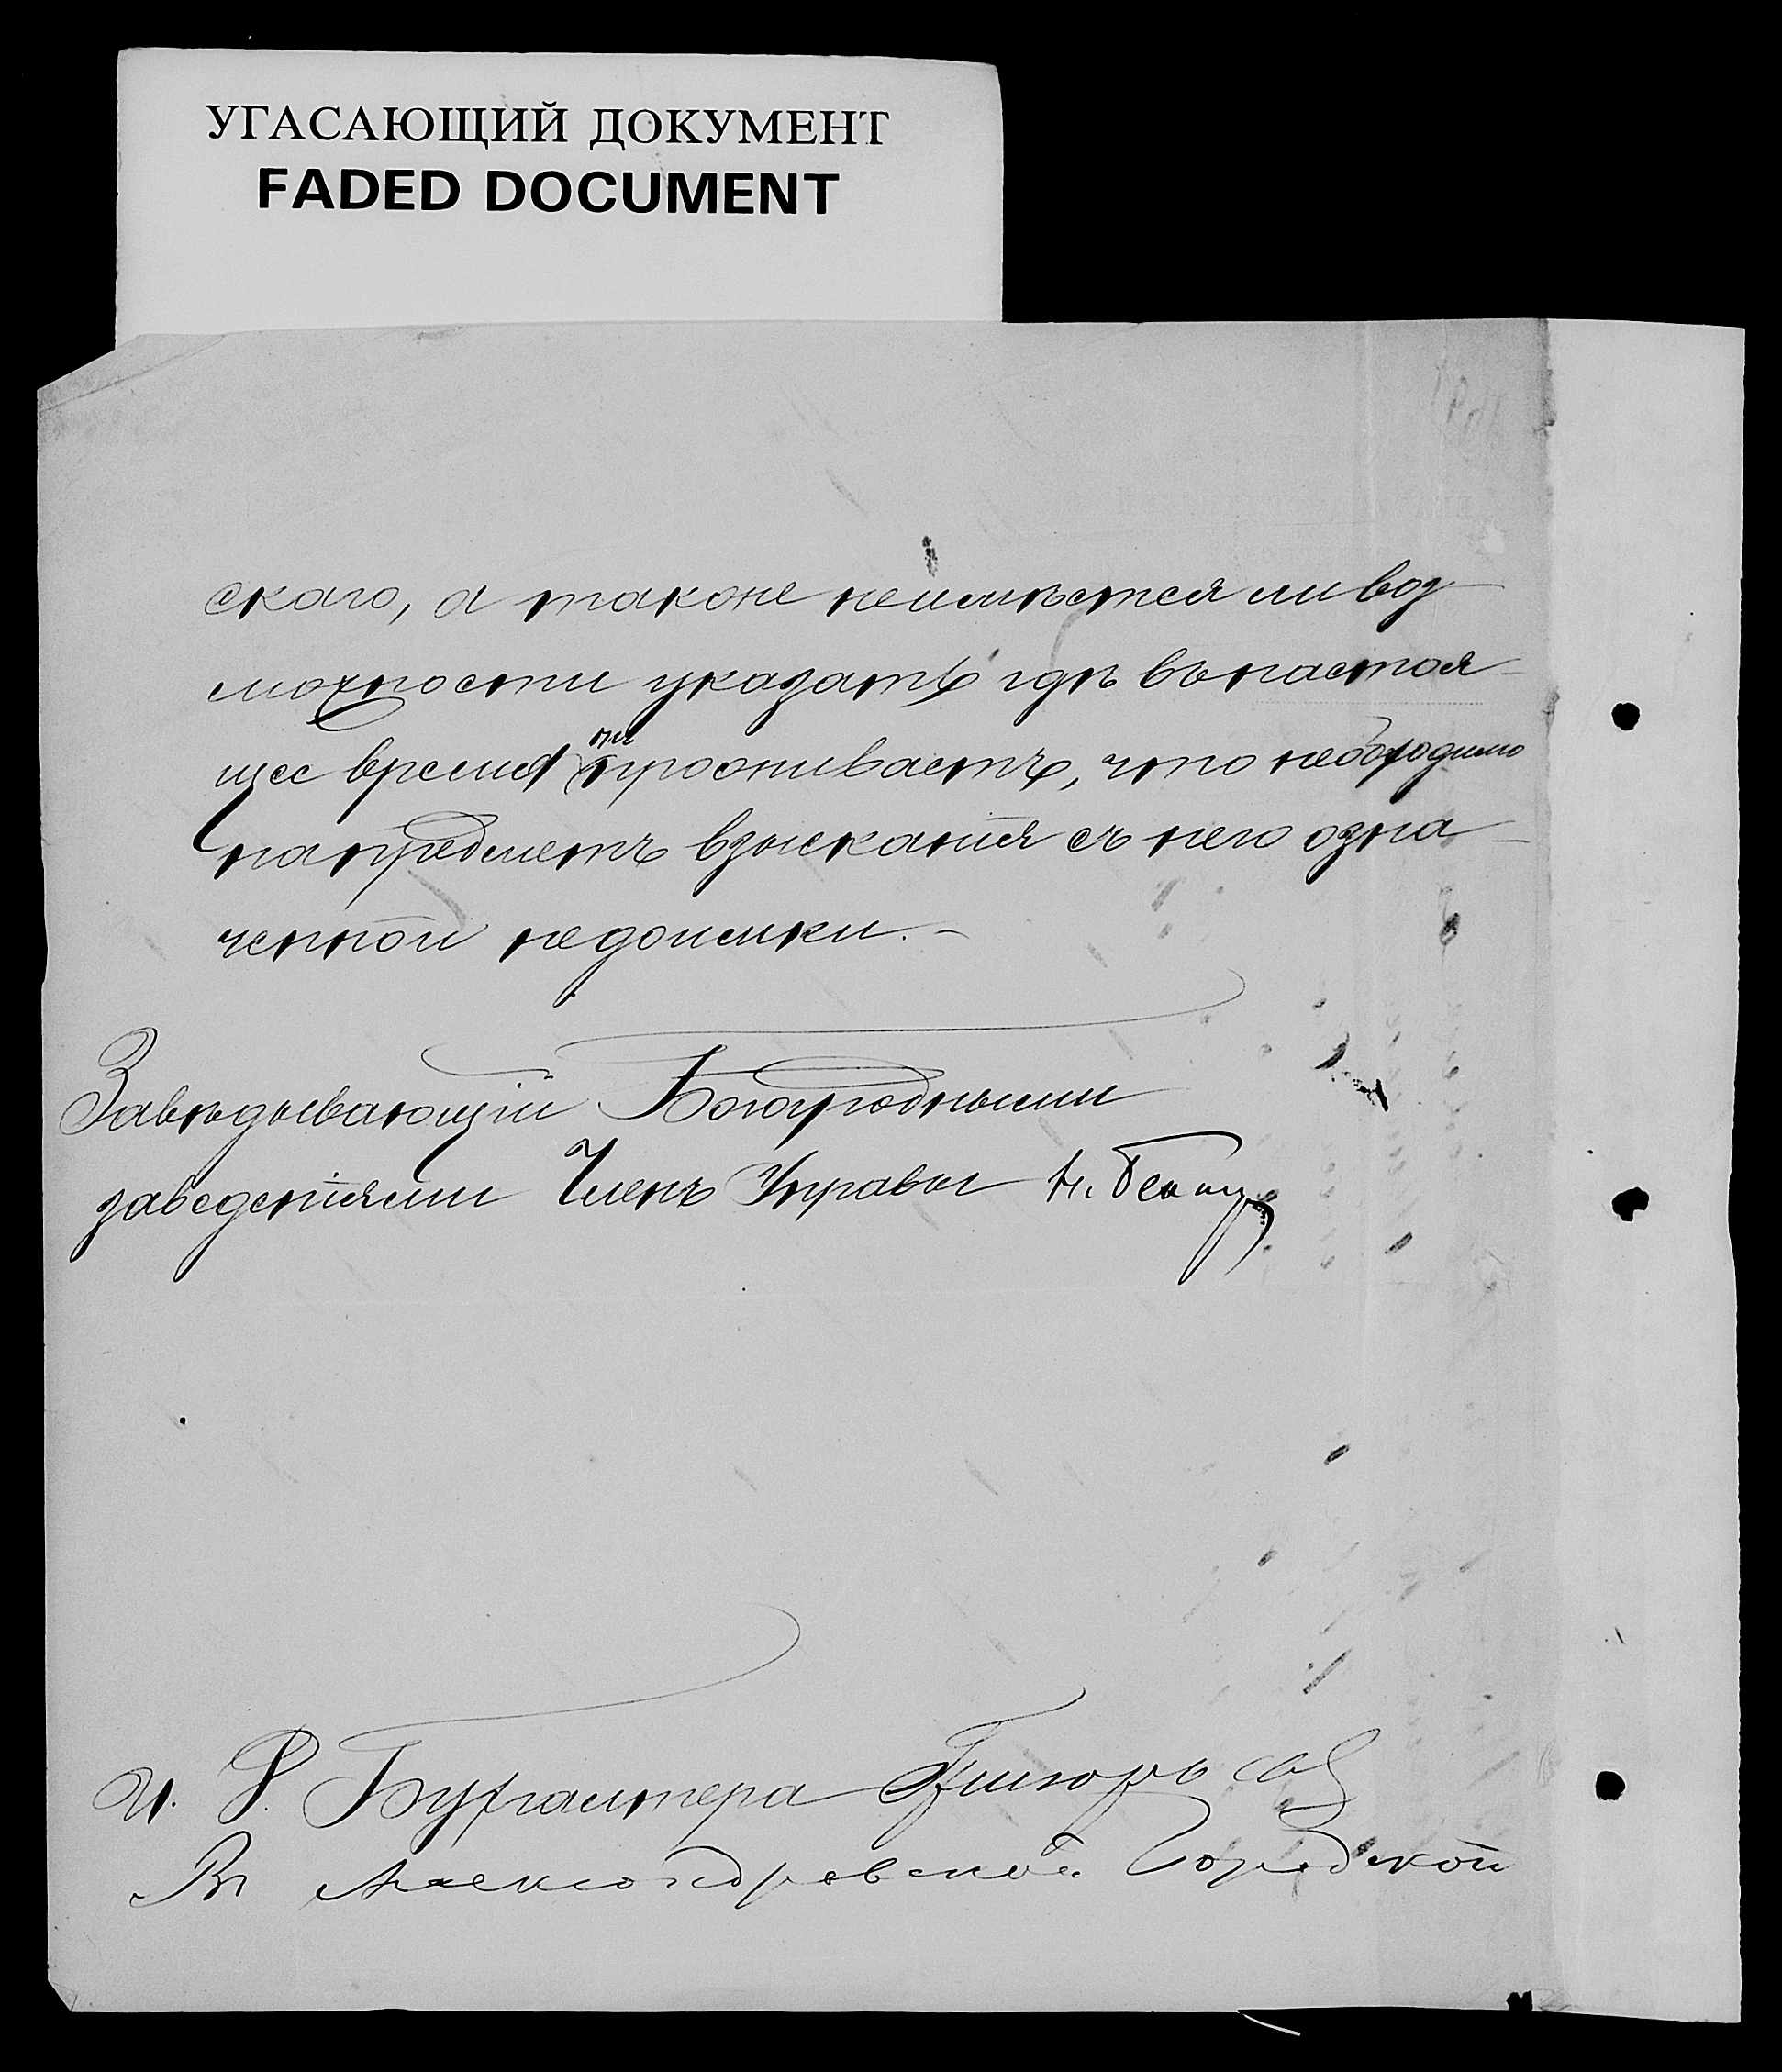 УГАСАЮЩИЙ ДОКУМЕНТ
FADED DOCUMENT
скаго, а также неимѣется ли воз-
можности указать гдѣ въ настоя-
щее время онъ проживаетъ, что необходимо
на предметъ взысканія съ него озна-
ченной недоимки.-
Завѣдывающій Богоугодными
заведеніями Членъ Управы
И. Д. Бухгалтера
Въ Александровской Городской